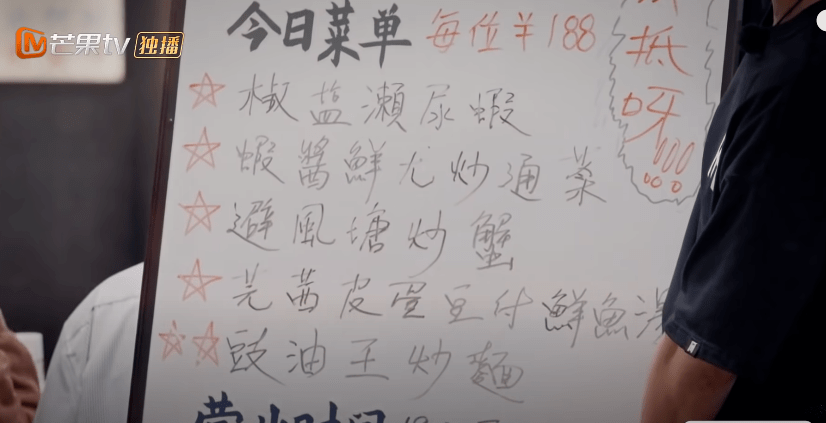 芒果tv 独播
今日菜单 每位¥188
抵
呀!!!
☆椒盐瀨尿蝦
☆蝦醬鮮尤炒通菜
☆避風塘炒蟹
☆芫茜皮蛋豆付鮮魚湯
☆☆豉油王炒麵
营业时间